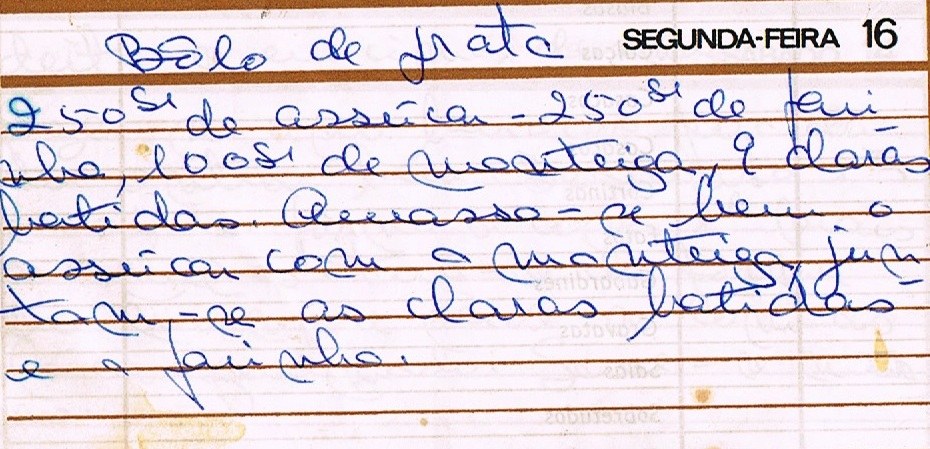 Bôlo de prata SEGUNDA-FEIRA 16
250gr de assúcar - 250gr de fari
nha, 100gr de manteiga, 9 claras
batidas. Amassa-se bem o
assúcar com a manteiga, jun
tam-se as claras batidas
e a farinha.